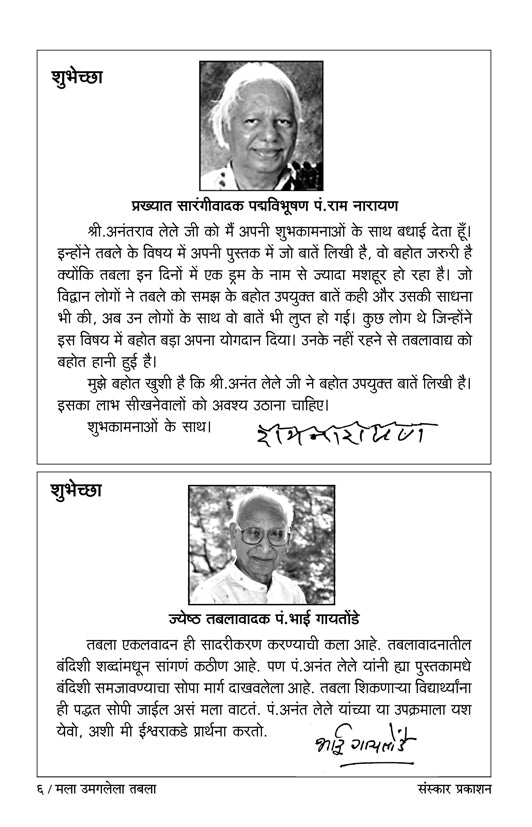 शुभेच्छा
प्रख्यात सारंगीवादक पद्मविभूषण पं.राम नारायण
श्री.अनंतराव लेले जी को मैं अपनी शुभकामनाओं के साथ बधाई देता हूँ।
इन्होंने तबले के विषय में अपनी पुस्तक में जो बातें लिखी है, वो बहोत जरुरी है
क्योंकि तबला इन दिनों में एक ड्रम के नाम से ज्यादा मशहूर हो रहा है। जो
विद्वान लोगों ने तबले को समझ के बहोत उपयुक्त बातें कही और उसकी साधना
भी की, अब उन लोगों के साथ वो बातें भी लुप्त हो गई। कुछ लोग थे जिन्होंने
इस विषय में बहोत बड़ा अपना योगदान दिया। उनके नहीं रहने से तबलावाद्य को
बहोत हानी हुई है।
मुझे बहोत खुशी है कि श्री.अनंत लेले जी ने बहोत उपयुक्त बातें लिखी है।
इसका लाभ सीखनेवालों को अवश्य उठाना चाहिए।
शुभकामनाओं के साथ।
रामनारायण
शुभेच्छा
ज्येष्ठ तबलावादक पं.भाई गायतोंडे
तबला एकलवादन ही सादरीकरण करण्याची कला आहे. तबलावादनातील
बंदिशी शब्दांमधून सांगणं कठीण आहे. पण पं.अनंत लेले यांनी ह्या पुस्तकामधे
बंदिशी समजावण्याचा सोपा मार्ग दाखवलेला आहे. तबला शिकणाऱ्या विद्यार्थ्यांना
ही पद्धत सोपी जाईल असं मला वाटतं. पं.अनंत लेले यांच्या या उपक्रमाला यश
येवो, अशी मी ईश्वराकडे प्रार्थना करतो.
भाई गायतोंडे
६ / मला उमगलेला तबला
संस्कार प्रकाशन